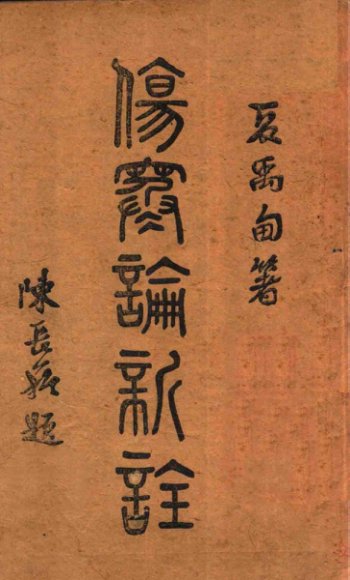 夏禹甸箸
傷寒論新詮
陳長蘅題